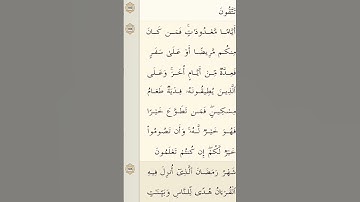 تَتَّقُونَ
أَيَّامًا مَّعْدُودَٰتٍ ۚ فَمَن كَانَ
مِنكُم مَّرِيضًا أَوْ عَلَىٰ سَفَرٍ
فَعِدَّةٌ مِّنْ أَيَّامٍ أُخَرَ ۚ وَعَلَى
ٱلَّذِينَ يُطِيقُونَهُۥ فِدْيَةٌ طَعَامُ
مِسْكِينٍ ۖ فَمَن تَطَوَّعَ خَيْرًا
فَهُوَ خَيْرٌ لَّهُۥ ۚ وَأَن تَصُومُوا۟
خَيْرٌ لَّكُمْ ۖ إِن كُنتُمْ تَعْلَمُونَ
شَهْرُ رَمَضَانَ ٱلَّذِىٓ أُنزِلَ فِيهِ
ٱلْقُرْءَانُ هُدًى لِّلنَّاسِ وَبَيِّنَٰتٍ